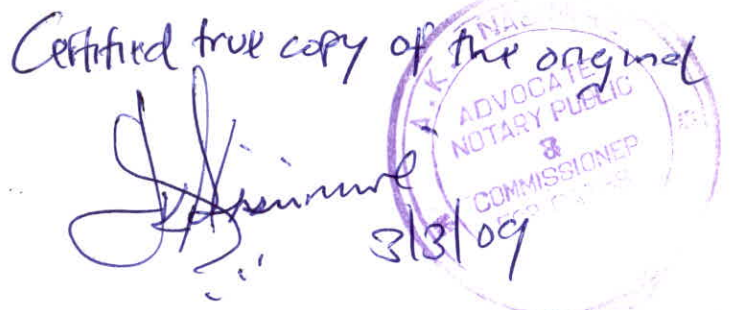 Certified true copy of the original
ADVOCATE
NOTARY PUBLIC
&
COMMISSIONER
3/3/09